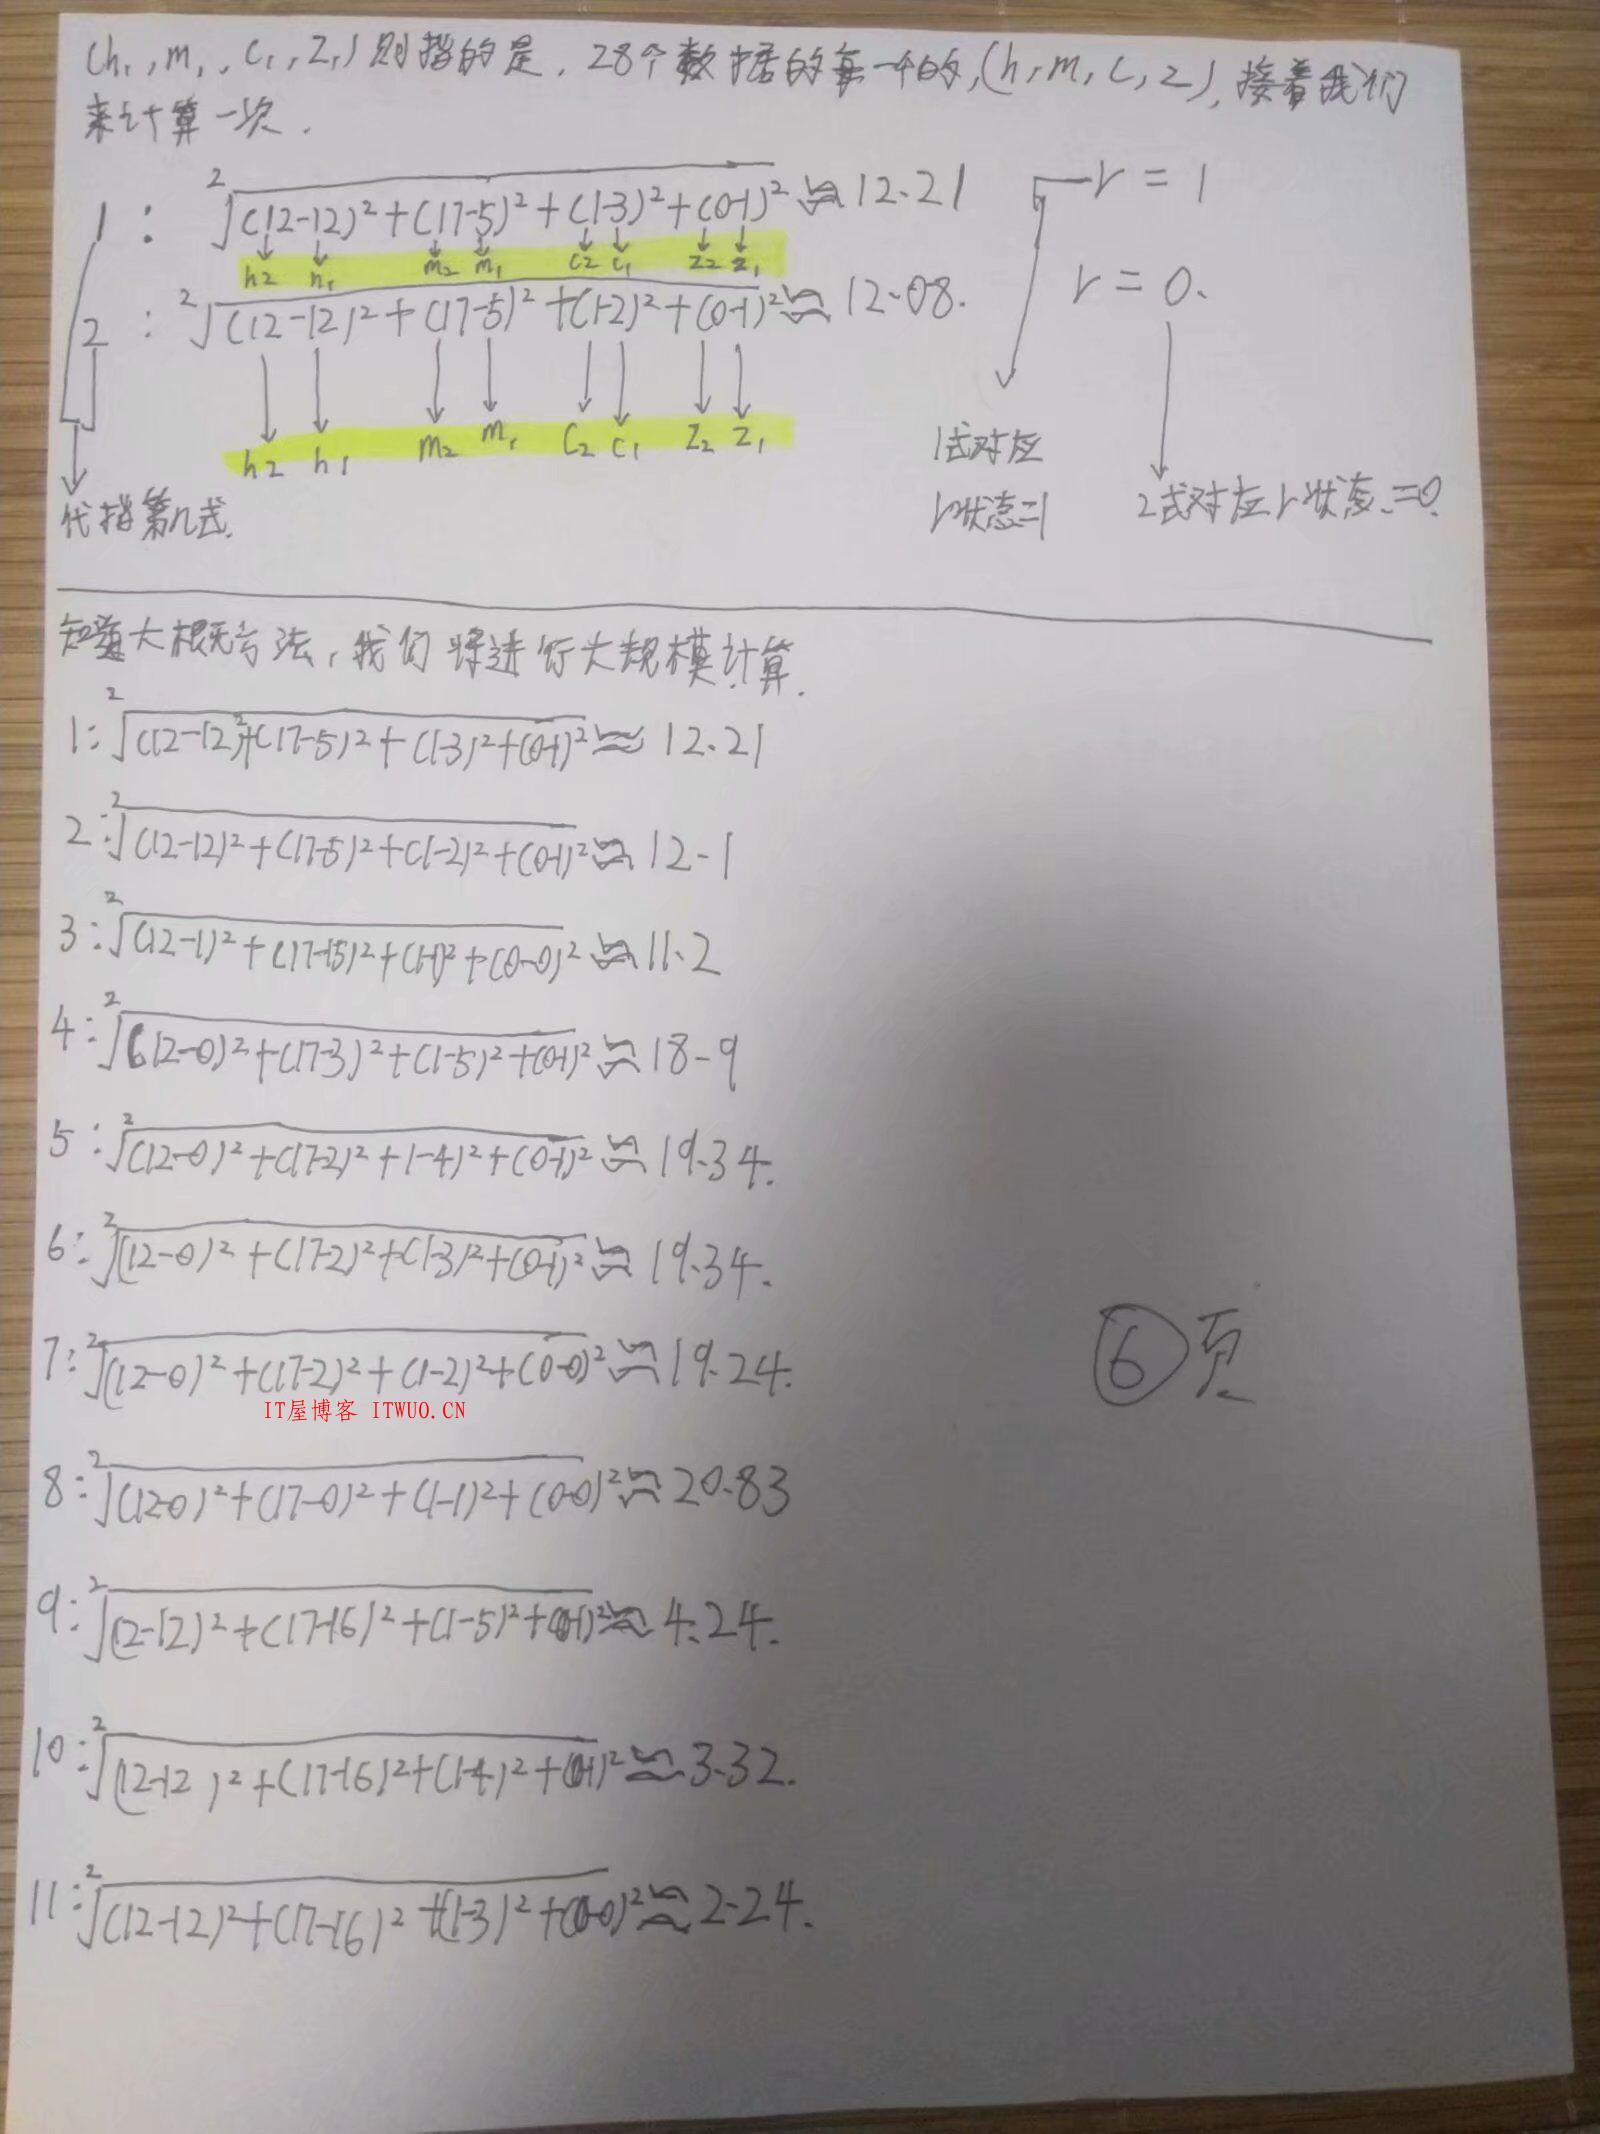 (h₁,m₁,c₁,z₁)则指的是，28个数据的每一个的，(h,m,c,z)，接着我们
来计算一次．
1：²√(12-12)²+(17-5)²+(1-3)²+(0-1)²≈12.21 r=1
h2 h₁ m₂ m₁ c2 c₁ z2 z₁
2：²√(12-12)²+(17-5)²+(1-2)²+(0-1)²≈12.08. r=0.
h2 h₁ m₂ m₁ c2 c₁ z2 z₁
代指第几式.
1式对应
r状态=1
2式对应r状态=0.
知道大概方法，我们将进行大规模计算.
1：²√(12-12)²+(17-5)²+(1-3)²+(0-1)²≈12.21
2：²√(12-12)²+(17-5)²+(1-2)²+(0-1)²≈12-1
3：²√(12-1)²+(17-15)²+(1-1)²+(0-0)²≈11.2
4：²√(12-0)²+(17-3)²+(1-5)²+(0-1)²≈18-9
5：²√(12-0)²+(17-2)²+1-4)²+(0-1)²≈19.34.
6：²√(12-0)²+(17-2)²+(1-3)²+(0-1)²≈19.34.
7：²√(12-0)²+(17-2)²+(1-2)²+(0-0)²≈19.24.
IT屋博客 ITWUO.CN
⑥页
8：²√(12-0)²+(17-0)²+(1-1)²+(0-0)²≈20.83
9：²√(12-12)²+(17-16)²+(1-5)²+(0-1)²≈4.24.
10：²√(12-12)²+(17-16)²+(1-4)²+(0-1)²≈3.32.
11：²√(12-12)²+(17-16)²+(1-3)²+(0-0)²≈2.24.